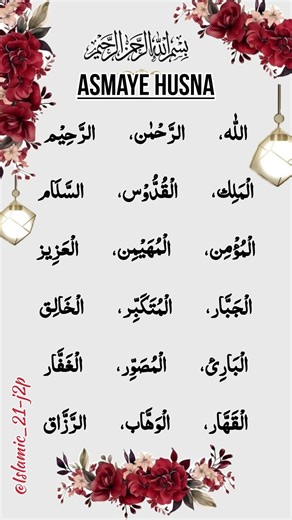 بسم الله الرحمن الرحيم
ASMAYE HUSNA
الله، الرَّحْمٰن، الرَّحِيْم
الْمَلِك، الْقُدُّوْس، السَّلَام
الْمُؤْمِن، الْمُهَيْمِن، الْعَزِيز
الْجَبَّار، الْمُتَكَبِّر، الْخَالِق
الْبَارِئُ، الْمُصَوِّر، الْغَفَّار
الْقَهَّار، الْوَهَّاب، الرَّزَّاق
@Islamic_21-j2p